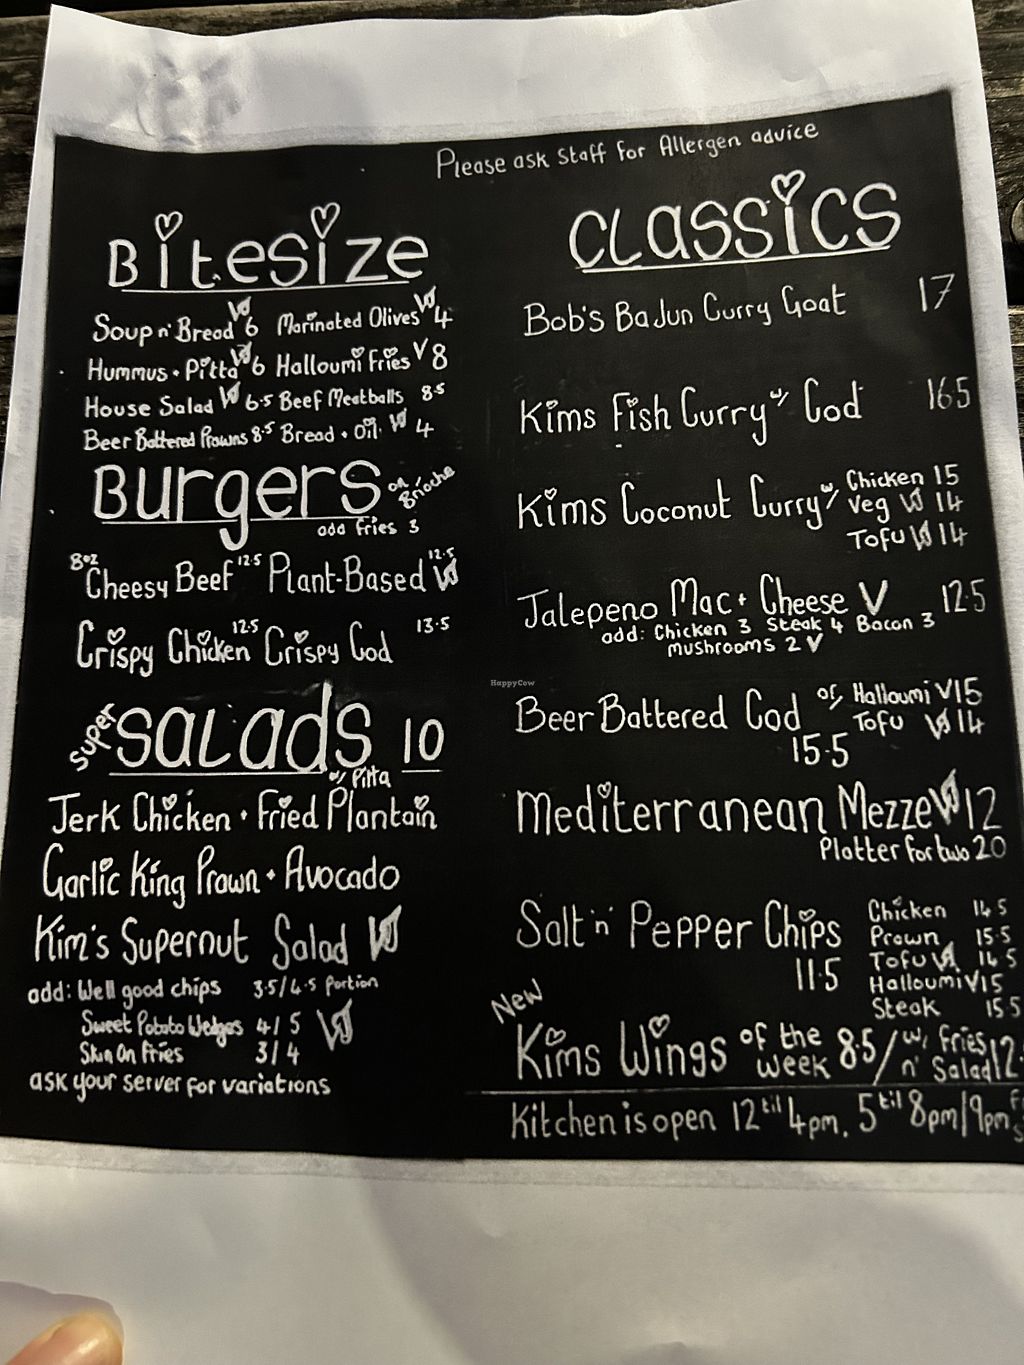 Please ask Staff for Allergen advice
Bitesize
Soup n' Bread VG 6 Marinated Olives VG 4
Hummus + Pitta VG 6 Halloumi Fries V 8
House Salad VG 6.5 Beef Meatballs 8.5
Beer Battered Prawns 8.5 Bread + Oil VG 4
Burgers on Brioche
add fries 3
8oz Cheesy Beef 12.5 Plant-Based VG 12.5
Crispy Chicken 12.5 Crispy Cod 13.5
Super Salads 10
w/ Pitta
Jerk Chicken + Fried Plantain
Garlic King Prawn + Avocado
Kim's Supernut Salad VG
add: Well good chips 3.5/4.5 Portion
Sweet Potato Wedges 4/5 VG
Skin On Fries 3/4
ask your server for variations
Classics
Bob's BaJun Curry Goat 17
Kims Fish Curry w/ Cod 16.5
Kims Coconut Curry w/ Chicken 15
Veg VG 14
Tofu VG 14
Jalepeno Mac + Cheese V 12.5
add: Chicken 3 Steak 4 Bacon 3
mushrooms 2 V
Beer Battered Cod or Halloumi V 15
Tofu VG 14
15.5
Mediterranean Mezze VG 12
Platter for two 20
Salt 'n' Pepper Chips 11.5
Chicken 14.5
Prawn 15.5
Tofu VG 14.5
Halloumi V 15
Steak 15.5
New
Kims Wings of the week 8.5/ w/ Fries n' Salad 12.
Kitchen is open 12 til 4pm. 5 til 8pm/9pm
HappyCow